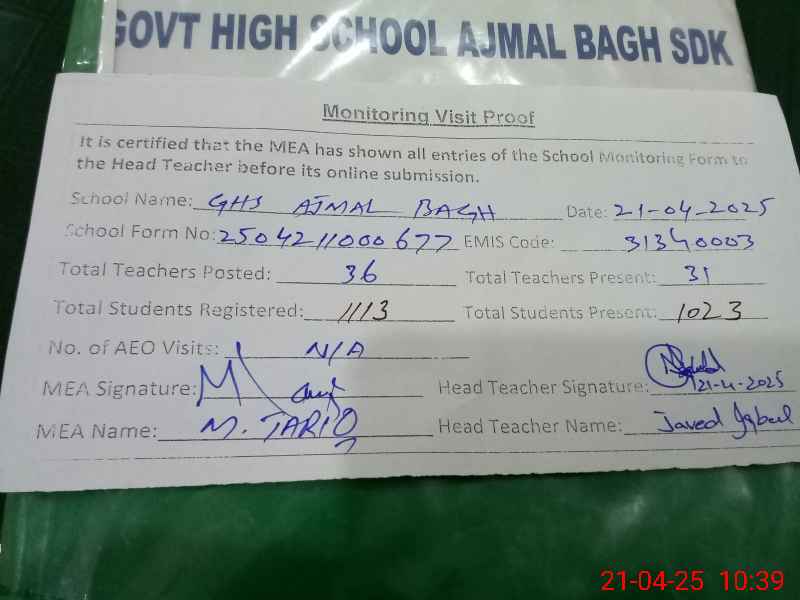 GOVT HIGH SCHOOL AJMAL BAGH SDK
Monitoring Visit Proof
It is certified that the MEA has shown all entries of the School Monitoring Form to
the Head Teacher before its online submission.
School Name: GHS AJMAL BAGH Date: 21-04-2025
School Form No: 2504211000677 EMIS Code: 31340003
Total Teachers Posted: 36 Total Teachers Present: 31
Total Students Registered: 1113 Total Students Present: 1023
No. of AEO Visits: N/A
MEA Signature: Head Teacher Signature: 21-4-2025
MEA Name: M. TARIQ Head Teacher Name: Javed Iqbal
21-04-25 10:39